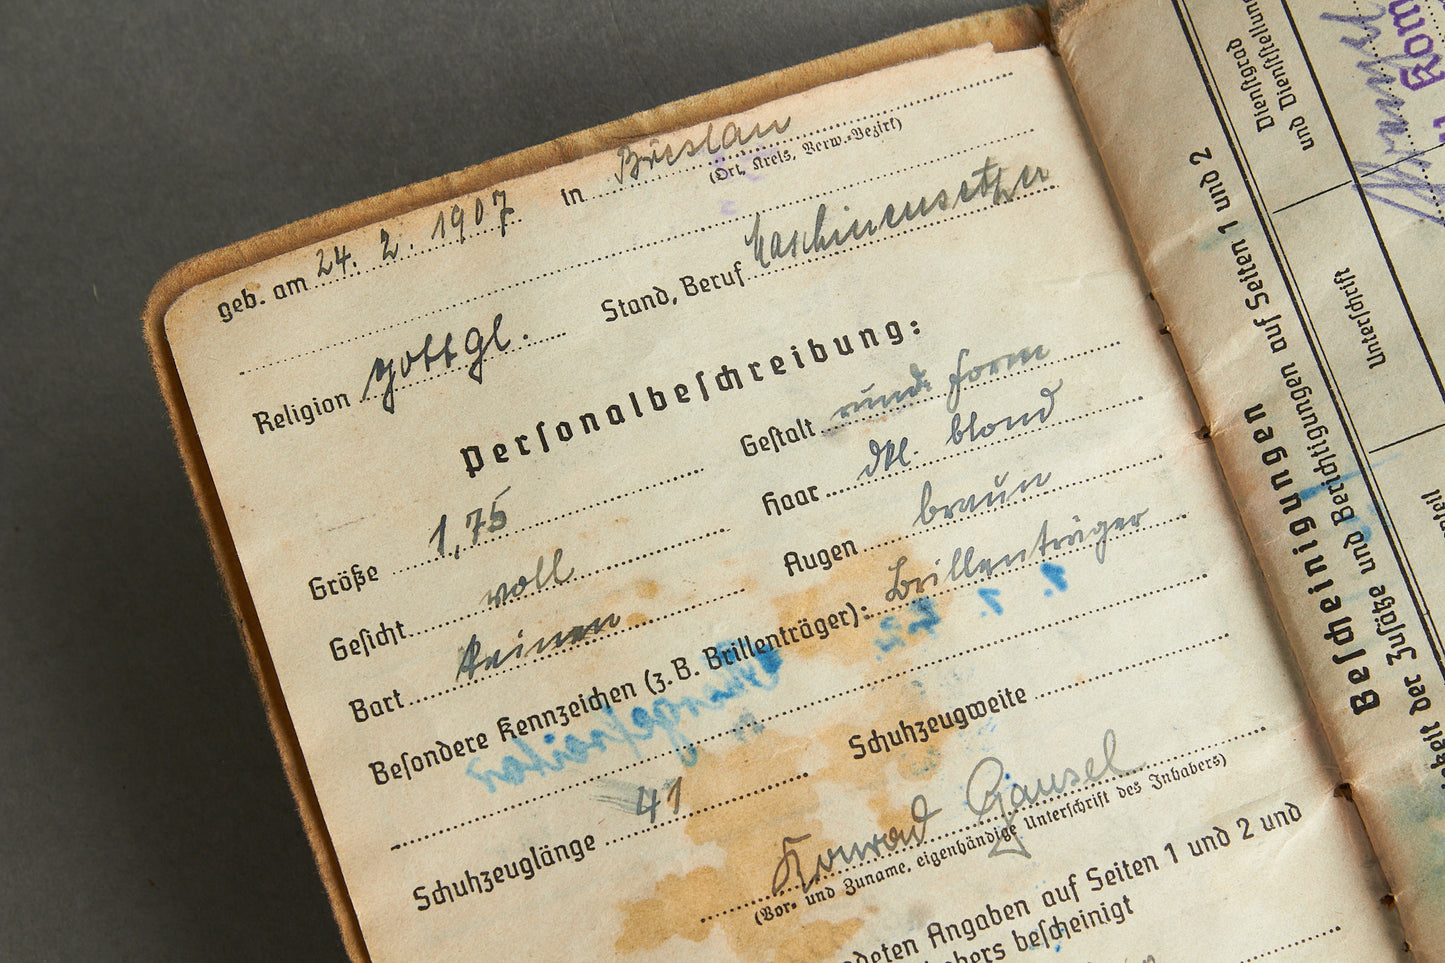 geb. am 24. 2. 1907 in Breslau
(Ort, Kreis, Verw.-Bezirk)
Religion gottgl. Stand, Beruf Maschinensetzer
Personalbeschreibung:
Größe 1,75 Gestalt rund. Form
Gesicht voll Haar dkl. blond
Bart keinen Augen braun
Besondere Kennzeichen (z. B. Brillenträger): Brillenträger
Schuhzeuglänge 41 Schuhzeugweite
Konrad Gausel
(Vor- und Zuname, eigenhändige Unterschrift des Inhabers)
Angaben auf Seiten 1 und 2 und
bescheinigt
Bescheinigungen
der Zusätze und Berichtigungen auf Seiten 1 und 2
Dienstgrad
und Dienststellung
Unterschrift